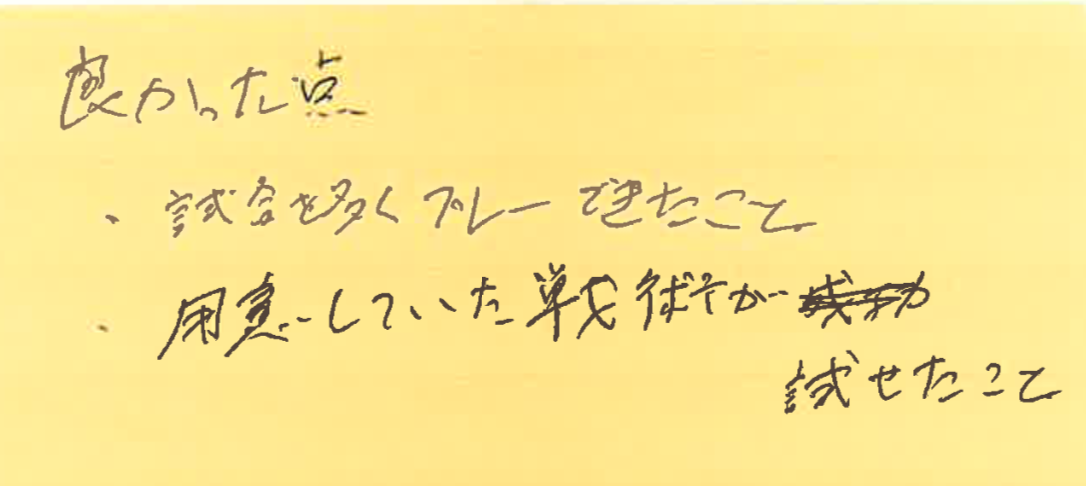 良かった点
・試合を多くプレーできたこと。
・用意していた戦術が成功
試せたこと